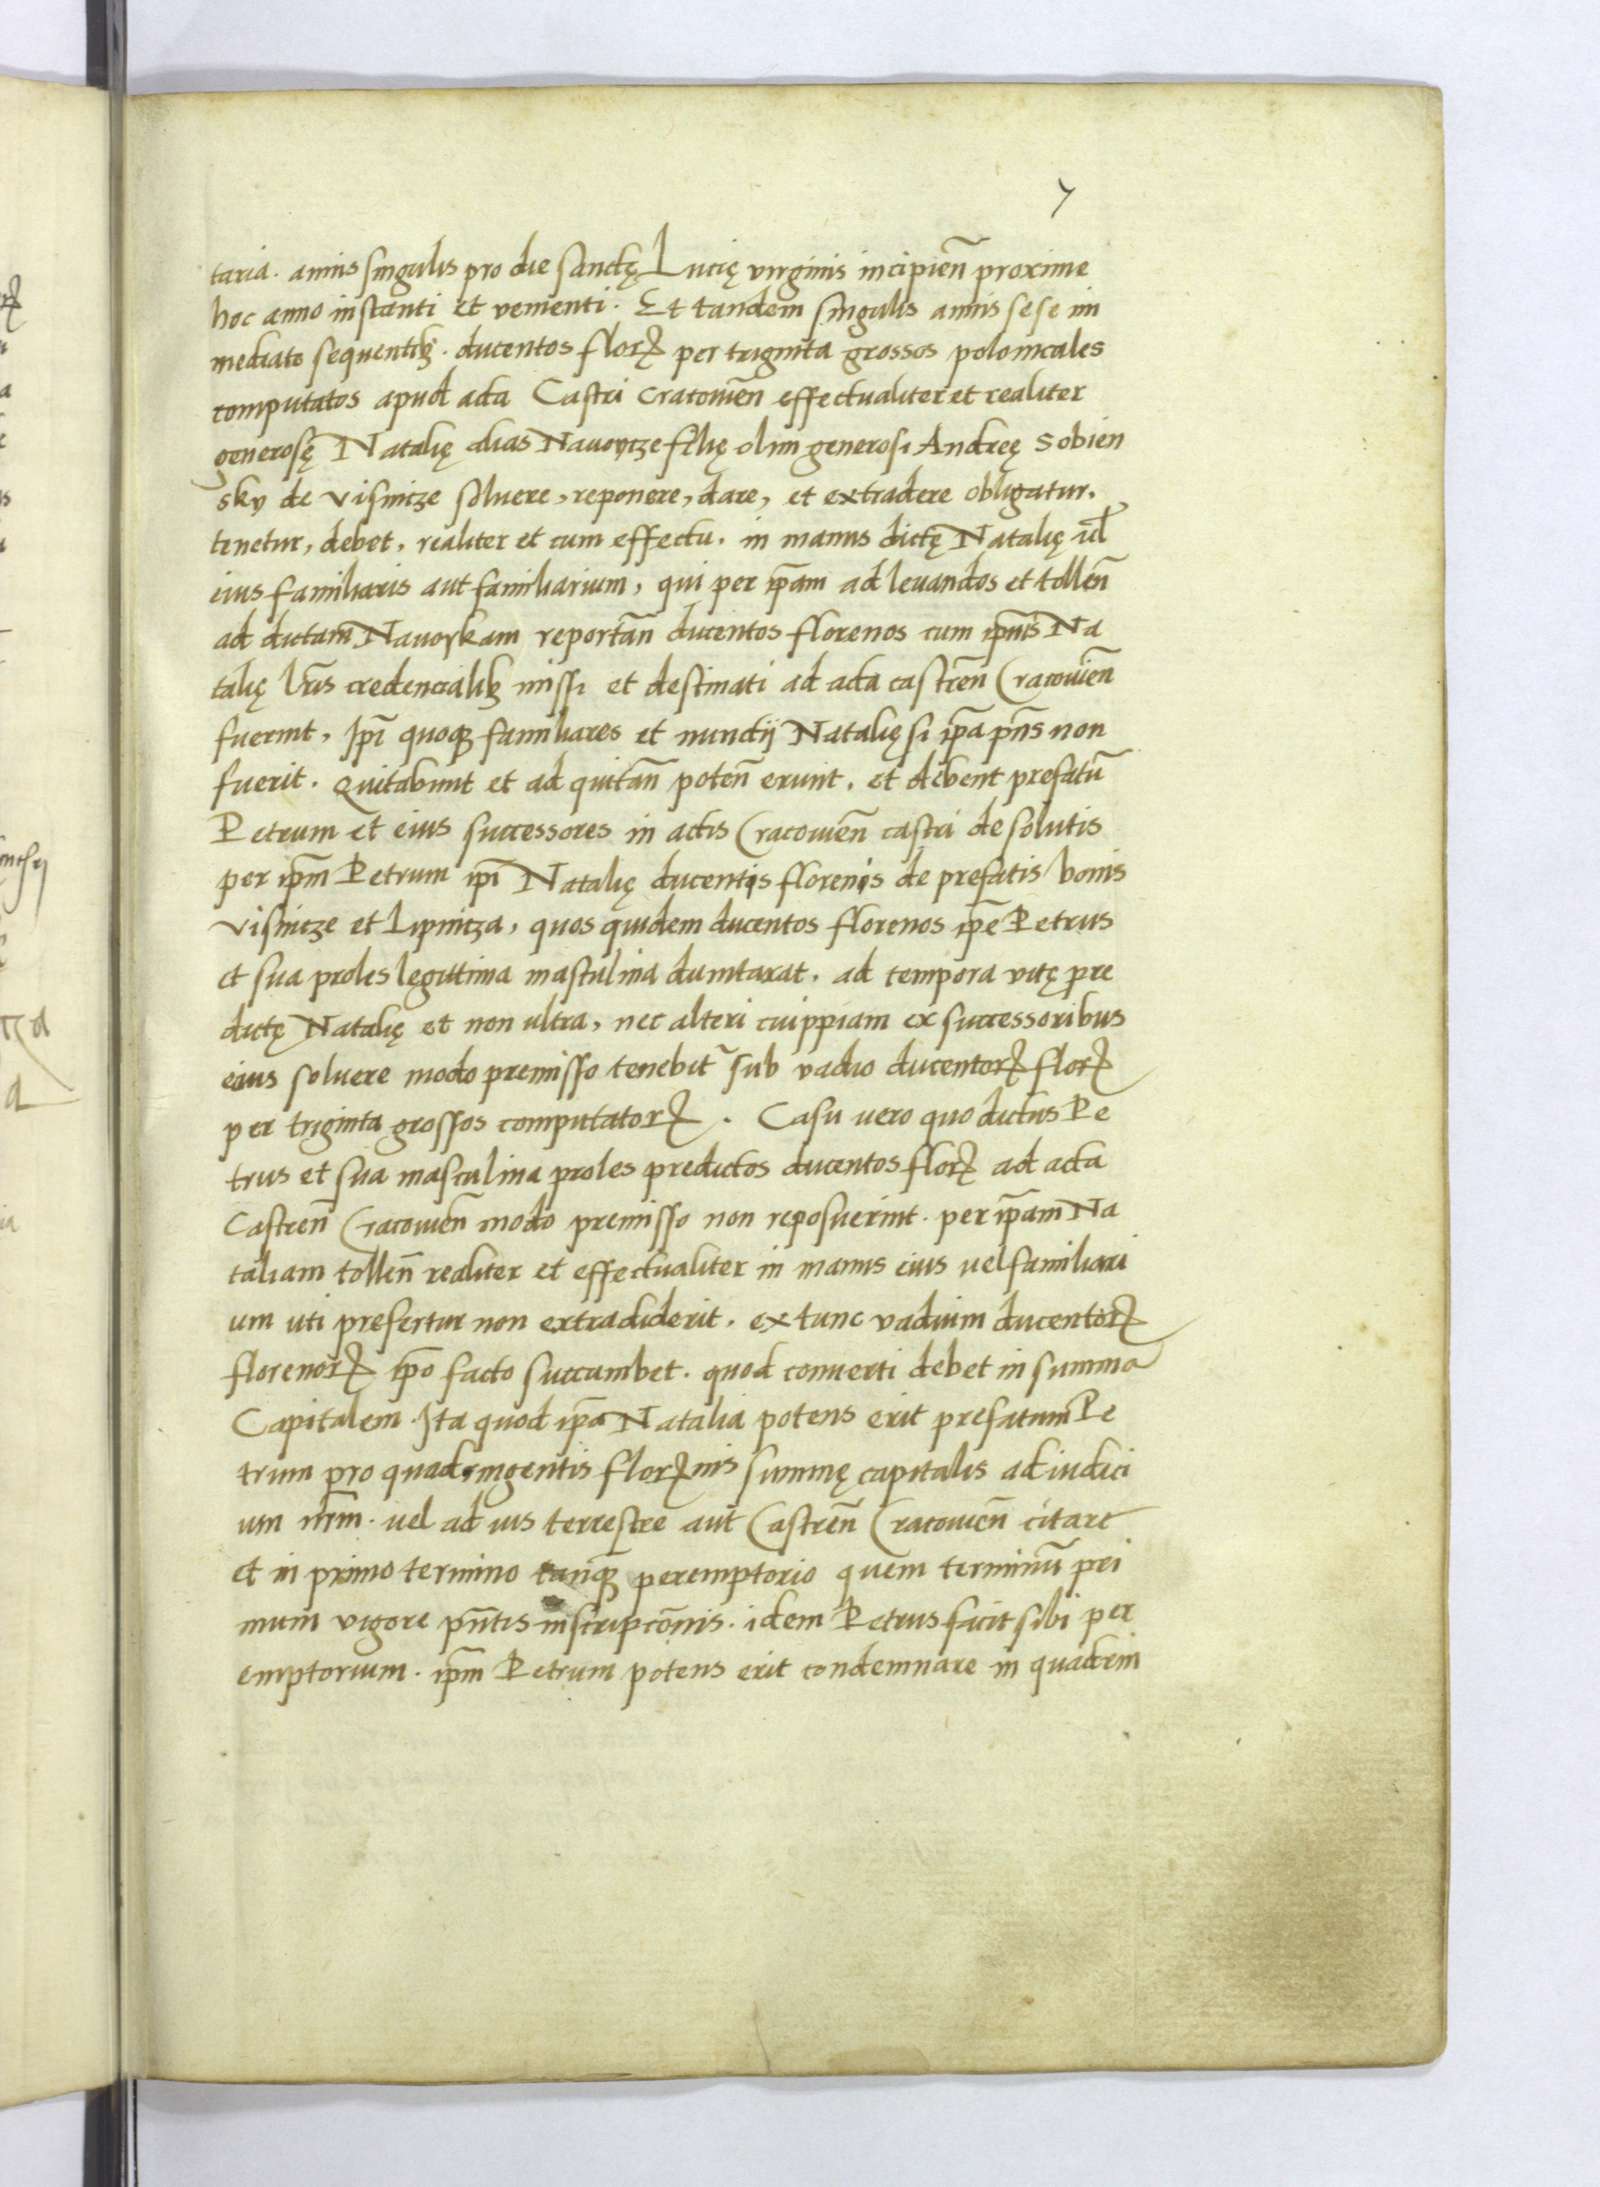 7
taria. annis singulis pro die sanctę Lucię virginis incipien̄ proxime
hoc anno instanti et venienti. Et tandem singulis annis sese im
mediate sequentibꝫ. ducentos florꝝ per triginta grossos polonicales
computatos apud acta Castri Cracovien̄ effectualiter et realiter
generosę Natalię alias Navoytze filię olim generosi Andreę Sobien
sky de Visnitze solvere, reponere, dare, et extradere obligatur.
tenetur, debet, realiter et cum effectu. in manus dictę Natalię ul̄
eius familiaris aut familiarium, qui per ip̄am ad levandos et tollen̄
ad dictam Navoykam reportan̄ ducentos florenos cum ip̄ius Na
talię l̄ris credencialibꝫ missi et destinati ad acta castren̄ Cracovien̄
fuerint, Ip̄i quoqꝫ familiares et nunctij Natalię si ip̄a pn̄s non
fuerit. Quitabunt et ad quitan̄ poten̄ erunt. et debent prefatū
Petrum et eius successores in actis Cracovien̄ castri de solutis
per ip̄m Petrum ip̄i Natalię ducentis florenis de prefatis bonis
Visnitze et Lipnitza, quos quidem ducentos florenos ip̄e Petrus
et sua proles legittima masculina dumtaxat. ad tempora vitę pre
dictę Natalię et non ultra, nec alteri cuippiam ex successoribus
eius solvere modo premisso tenebit̄ sub vadio ducentorꝝ florꝝ
per triginta grossos computatorꝝ. Casu vero quo dictus Pe
trus et sua masculina proles predictos ducentos florꝝ ad acta
Castren̄ Cracovien̄ modo premisso non reposuerint. per ip̄am Na
taliam tollen̄ realiter et effectualiter in manus eius vel familiari
um uti prefertur non extradiderit. ex tunc vadium ducentorꝝ
florenorꝝ ip̄o facto succumbet. quod converti debet in summa
Capitalem. Ita quod ip̄a Natalia potens erit prefatum Pe
trum pro quadringentis florꝝnis summę capitalis ad iudici
um nr̄m. vel ad ius terrestre aut Castren̄ Cracovien̄ citare
et in primo termino tanqꝫ peremptorio quem terminū pri
mum vigore pn̄tis inscripcōnis. idem Petrus facit sibi per
emptorium. ip̄m Petrum potens erit condemnare in quadrin